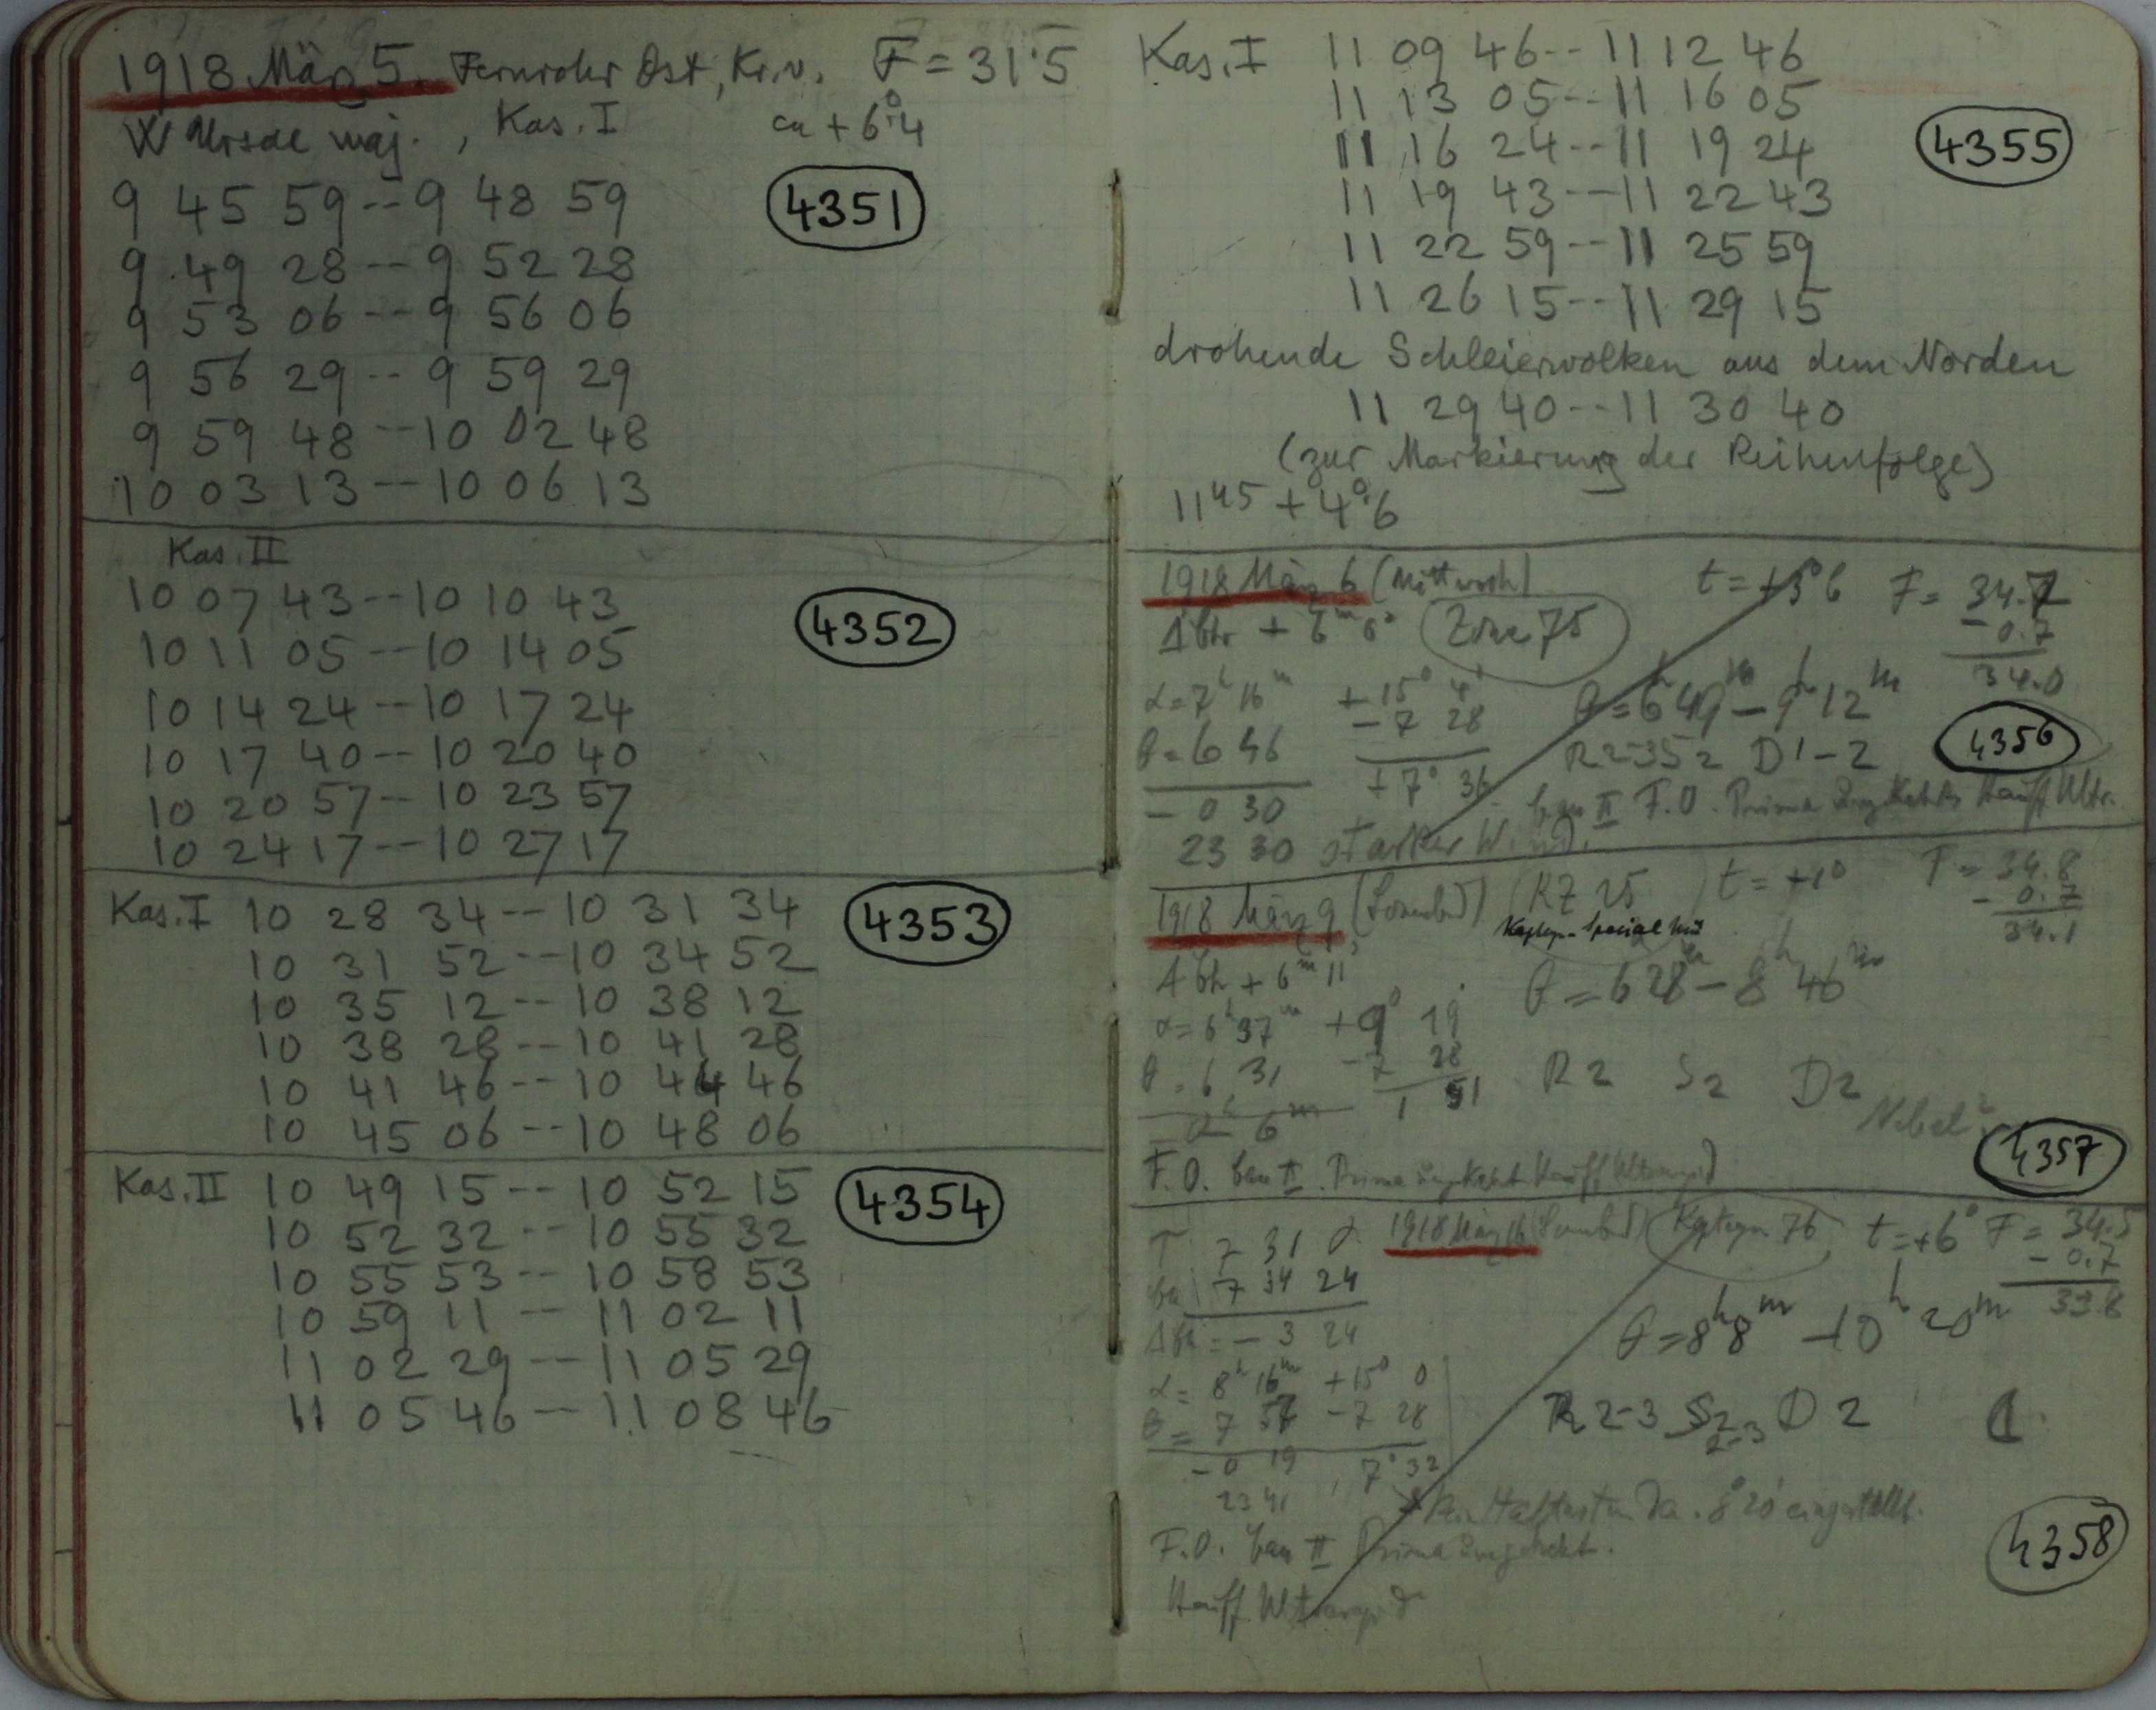 1918 März 5. Fernrohr Ost, Kr. v. F = 31.5
W Ursae maj., Kas. I ca + 6°.4
9 45 59 -- 9 48 59
4351
9 49 28 -- 9 52 28
9 53 06 -- 9 56 06
9 56 29 -- 9 59 29
9 59 48 -- 10 02 48
10 03 13 -- 10 06 13
Kas. II
10 07 43 -- 10 10 43
4352
10 11 05 -- 10 14 05
10 14 24 -- 10 17 24
10 17 40 -- 10 20 40
10 20 57 -- 10 23 57
10 24 17 -- 10 27 17
Kas. I 10 28 34 -- 10 31 34
4353
10 31 52 -- 10 34 52
10 35 12 -- 10 38 12
10 38 28 -- 10 41 28
10 41 46 -- 10 44 46
10 45 06 -- 10 48 06
Kas. II 10 49 15 -- 10 52 15
4354
10 52 32 -- 10 55 32
10 55 53 -- 10 58 53
10 59 11 -- 11 02 11
11 02 29 -- 11 05 29
11 05 46 -- 11 08 46
Kas. I 11 09 46 -- 11 12 46
11 13 05 -- 11 16 05
4355
11 16 24 -- 11 19 24
11 19 43 -- 11 22 43
11 22 59 -- 11 25 59
11 26 15 -- 11 29 15
drohende Schleierwolken aus dem Norden
11 29 40 -- 11 30 40
(zur Markierung der Reihenfolge)
11 45 + 4°.6
1918 März 6 (Mittwoch) t = +3°6 F = 34.7
- 0.7
34.0
Zone 75
α = 7h 16m + 15° 4'
- 7 28
θ = 6 46
+ 7° 36
- 0 30
θ = 6h 49m - 9h 12m
4356
23 30 starker Wind.
1918 März 9 (Sonnabend) KZ 25 t = +1° F = 34.8
- 0.7
34.1
Δ Uhr + 6m 11s
θ = 6 28m - 8h 46m
α = 6h 37m + 9° 19'
θ = 6 31 - 7 28
1 51
6m
R 2 S 2 D 2
Nebel?
4357
F.O. II Prima
1918 März 16 (Sonnabend) Kapteyn 76 t = +6° F = 34.5
- 0.7
33.8
T 7 31 0
7 34 24
- 3 24
θ = 8h 8m - 10h 20m
α = 8h 16m + 15° 0
θ = 7 57 - 7 28
- 0 19 7° 32
23 41
R 2-3 S 2-3 D 2
F.O. II Prima
4358